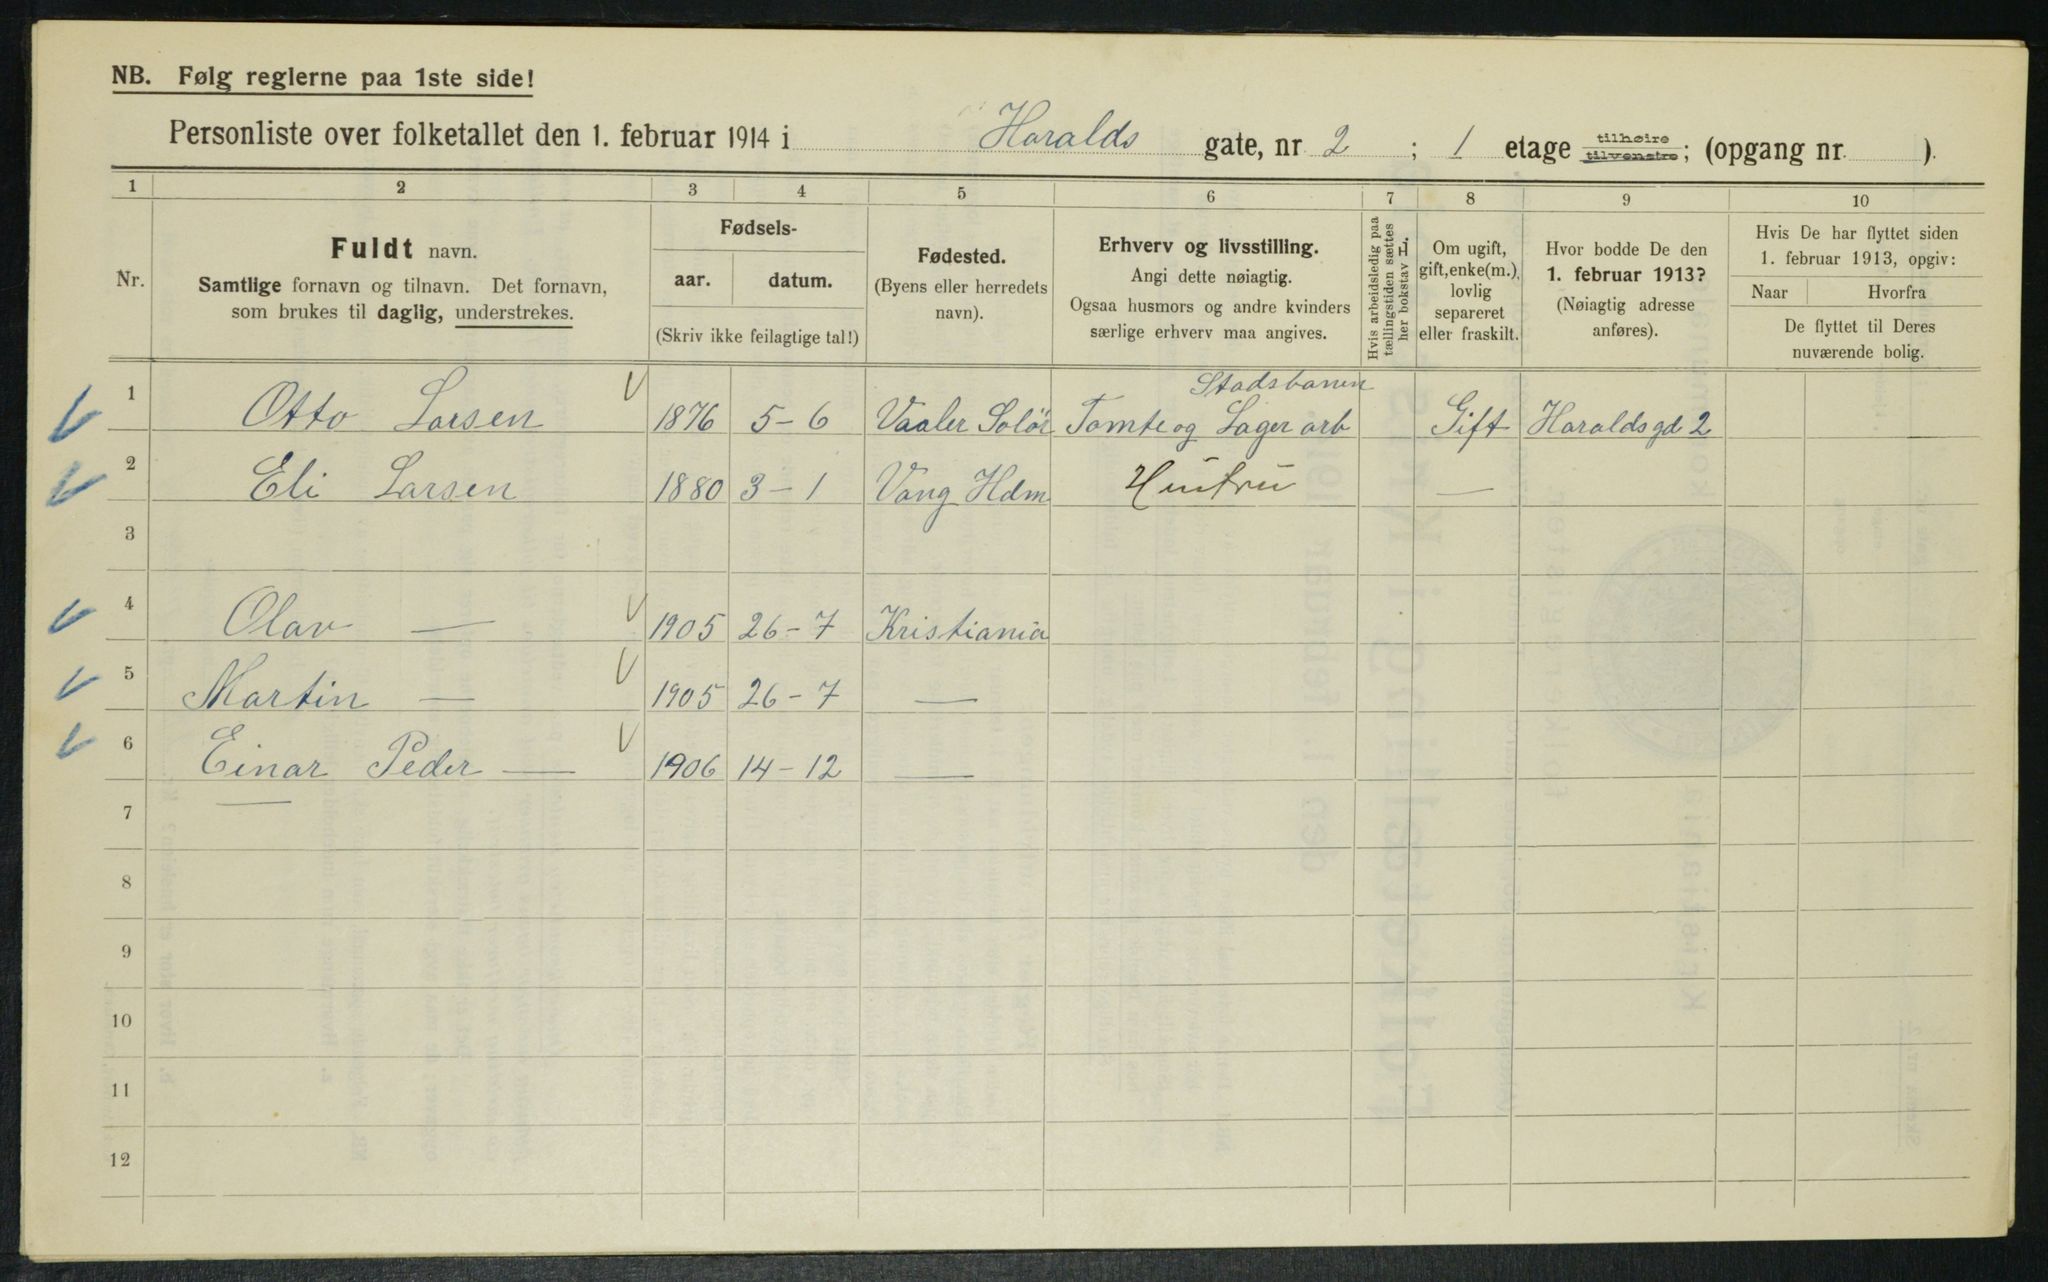 NB. Følg reglerne paa 1ste side!
Personliste over folketallet den 1. februar 1914 i Haralds gate, nr 2 ; 1 etage tilhøire tilvenstre; (opgang nr. ).
1 2 3 4 5 6 7 8 9 10
Nr.
Fuldt navn.
Samtlige fornavn og tilnavn. Det fornavn,
som brukes til daglig, understrekes.
Fødsels-
aar. datum.
(Skriv ikke feilagtige tal!)
Fødested.
(Byens eller herredets
navn).
Erhverv og livsstilling.
Angi dette nøiagtig.
Ogsaa husmors og andre kvinders
særlige erhverv maa angives.
Hvis arbeidsledig paa
tællingstiden sættes
her bokstav L.
Om ugift,
gift, enke(m.),
lovlig
separeret
eller fraskilt.
Hvor bodde De den
1. februar 1913?
(Nøiagtig adresse
anføres).
Hvis De har flyttet siden
1. februar 1913, opgiv:
Naar Hvorfra
De flyttet til Deres
nuværende bolig.
Stadsbanen
1 Otto Larsen 1876 5-6 Vaaler Solør Tomte og Lager arb Gift Haraldsgd 2
2 Eli Larsen 1880 3-1 Vang Hdm Hustru —
3
4 Olav — 1905 26-7 Kristiania
5 Martin — 1905 26-7 —
6 Einar Peder — 1906 14-12 —
7
8
9
10
11
12